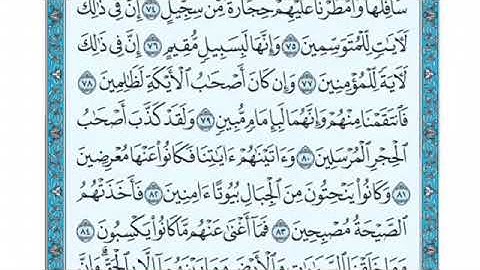 سَافِلَهَا وَأَمْطَرْنَا عَلَيْهِمْ حِجَارَةً مِّن سِجِّيلٍ ٧٤ إِنَّ فِي ذَٰلِكَ
لَآيَاتٍ لِّلْمُتَوَسِّمِينَ ٧٥ وَإِنَّهَا لَبِسَبِيلٍ مُّقِيمٍ ٧٦ إِنَّ فِي ذَٰلِكَ
لَآيَةً لِّلْمُؤْمِنِينَ ٧٧ وَإِن كَانَ أَصْحَابُ الْأَيْكَةِ لَظَالِمِينَ ٧٨
فَانتَقَمْنَا مِنْهُمْ وَإِنَّهُمَا لَبِإِمَامٍ مُّبِينٍ ٧٩ وَلَقَدْ كَذَّبَ أَصْحَابُ
الْحِجْرِ الْمُرْسَلِينَ ٨٠ وَءَاتَيْنَاهُمْ ءَايَاتِنَا فَكَانُوا عَنْهَا مُعْرِضِينَ
٨١ وَكَانُوا يَنْحِتُونَ مِنَ الْجِبَالِ بُيُوتًا ءَامِنِينَ ٨٢ فَأَخَذَتْهُمُ
الصَّيْحَةُ مُصْبِحِينَ ٨٣ فَمَا أَغْنَىٰ عَنْهُم مَّا كَانُوا يَكْسِبُونَ ٨٤
وَمَا خَلَقْنَا السَّمَاوَاتِ وَالْأَرْضَ وَمَا بَيْنَهُمَا إِلَّا بِالْحَقِّ وَإِنَّ